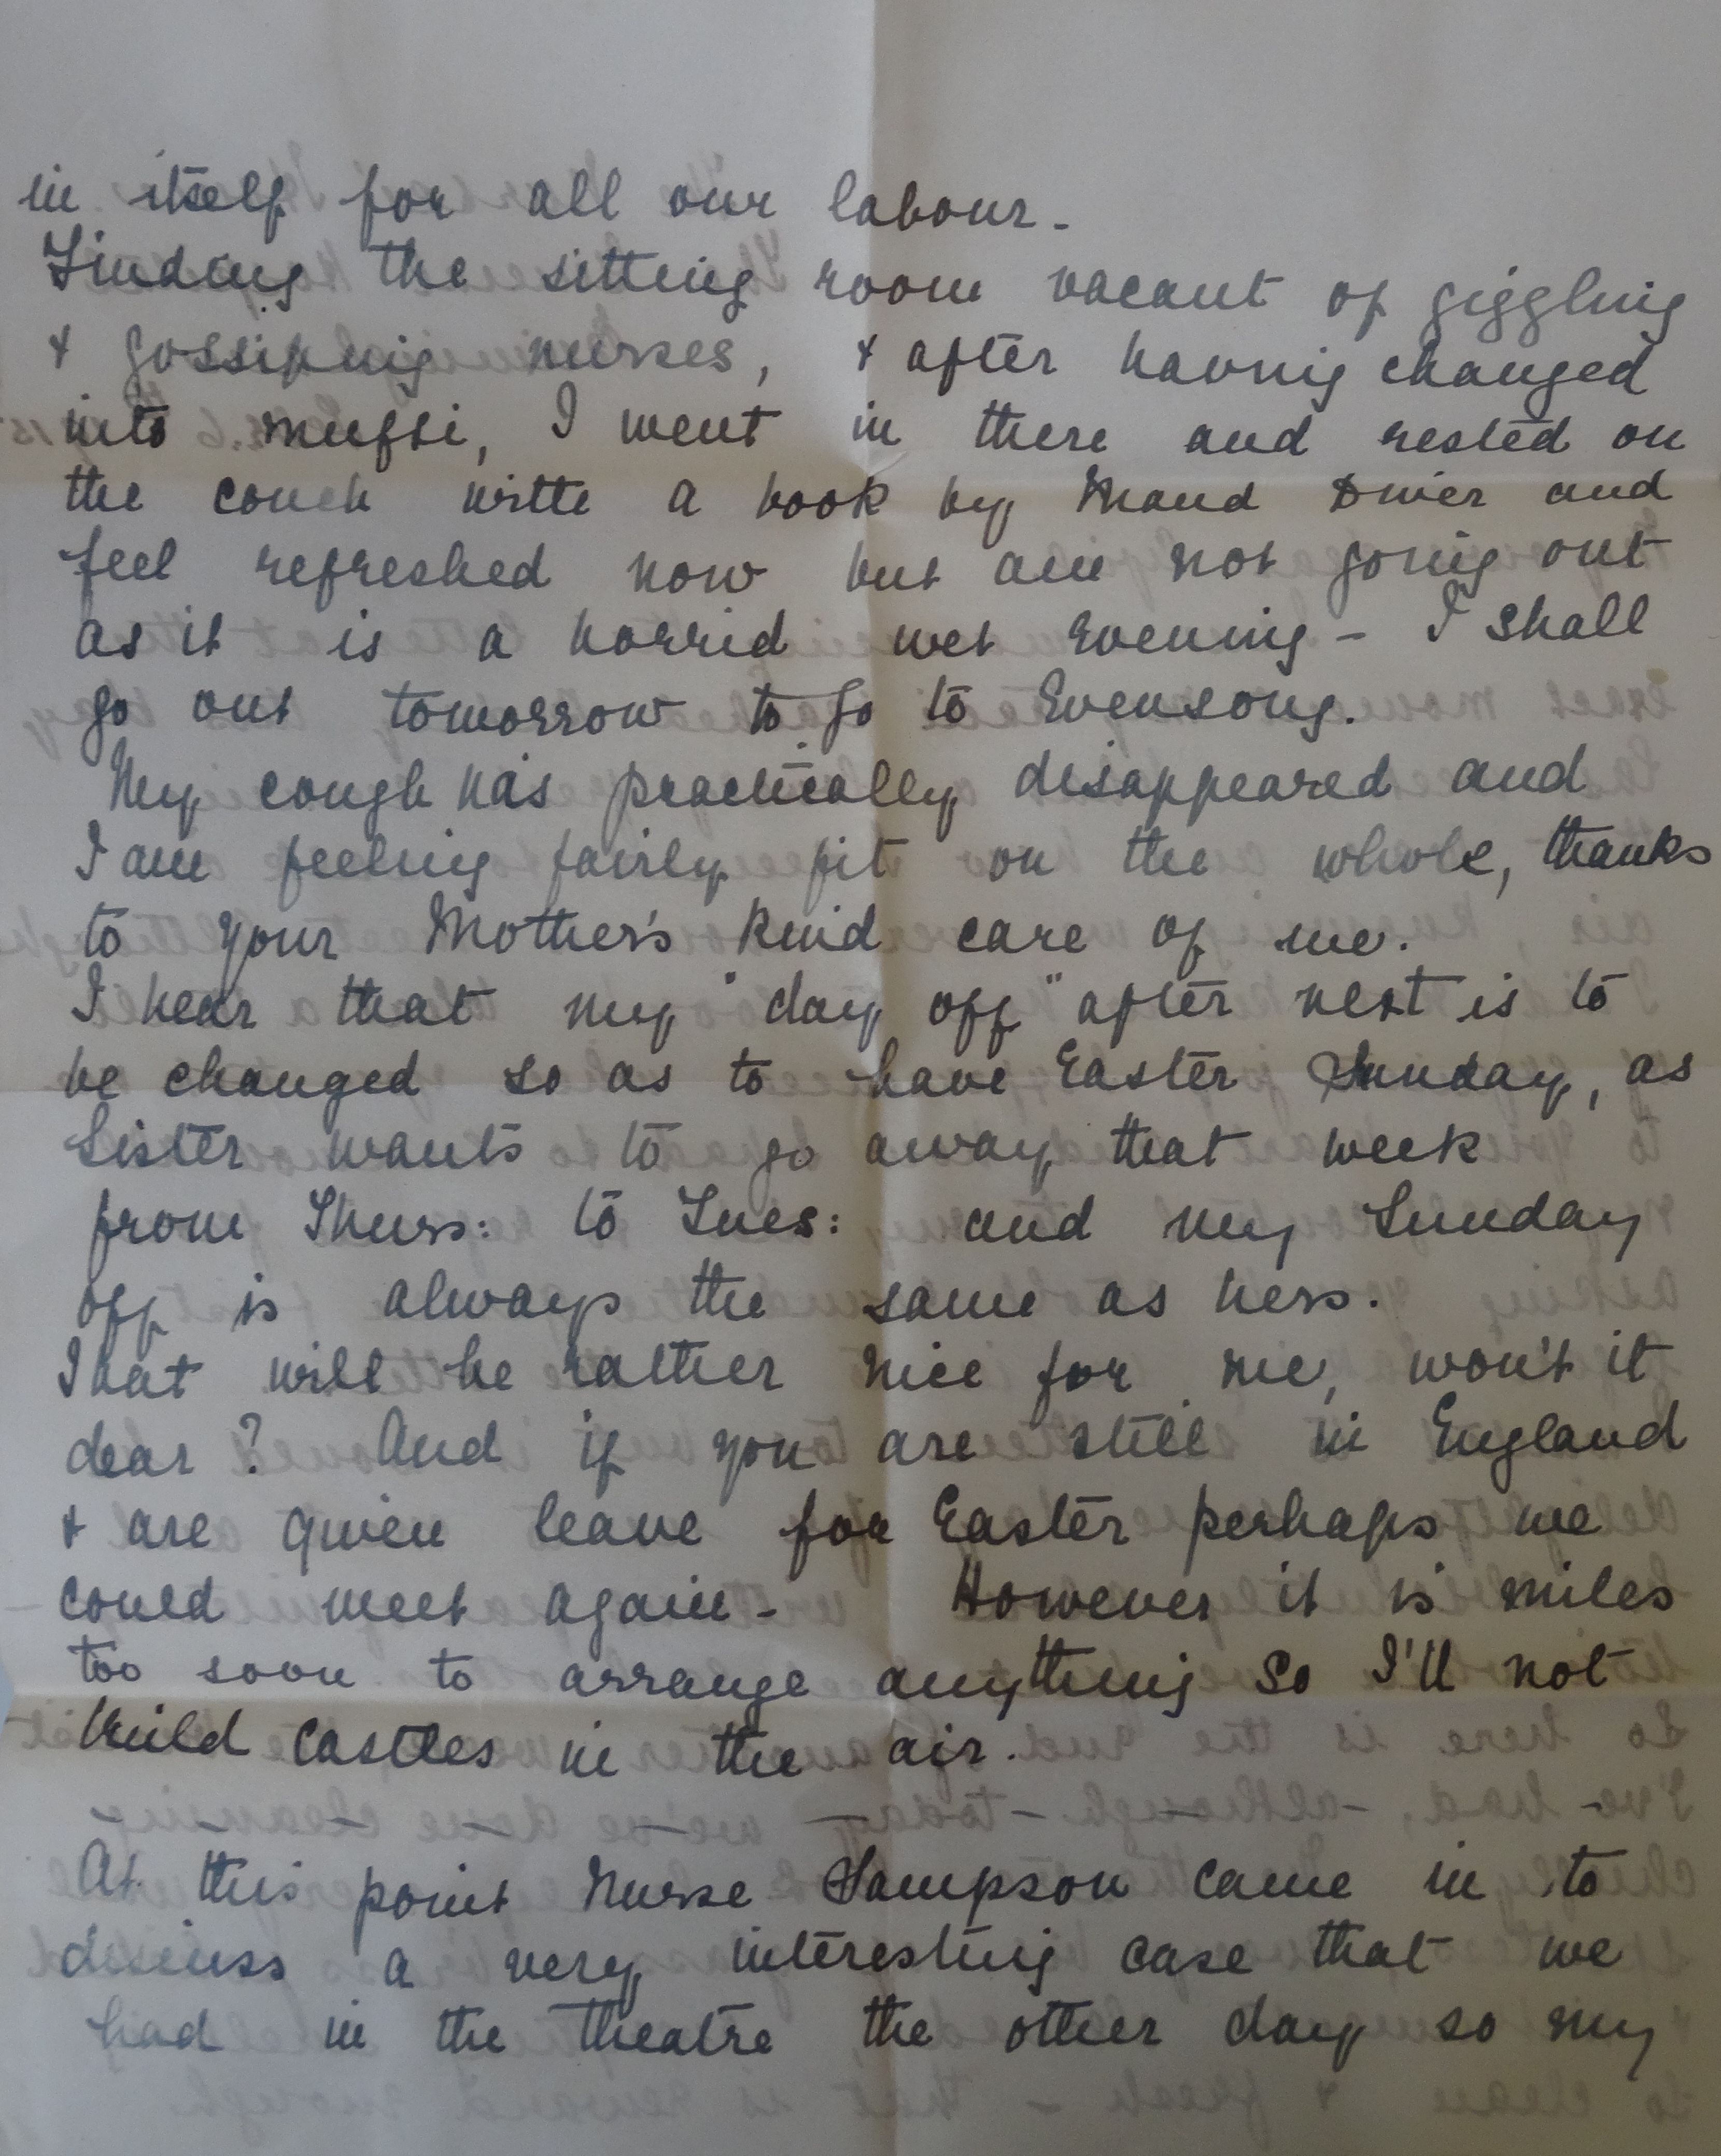 in itself for all our labour -
Finding the sitting room vacant of giggling
& gossiping nurses, & after having changed
into mufti, I went in there and rested on
the couch with a book by Maud Diver and
feel refreshed now but am not going out
as it is a horrid wet evening - I shall
go out tomorrow to go to Evensong.
My cough has practically disappeared and
I am feeling fairly fit on the whole, thanks
to your Mother's kind care of me.
I hear that my "day off" after next is to
be changed so as to have Easter Sunday, as
Sister wants to go away that week
from Thurs: to Tues: and my Sunday
off is always the same as hers.
That will be rather nice for me, won't it
dear? And if you are still in England
& are given leave for Easter perhaps we
could meet again - However it is miles
too soon to arrange anything so I'll not
build castles in the air.
At this point Nurse Sampson came in to
discuss a very interesting case that we
had in the theatre the other day so my